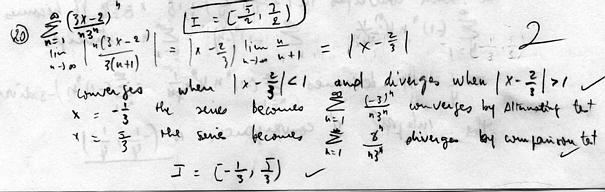 (20) ∑_{n=1}^{∞} (3x-2)^n / n3^n
I = [-5/2, 7/2)
lim_{n→∞} |n(3x-2) / 3(n+1)| = |x - 2/3| lim_{n→∞} n/n+1 = |x - 2/3|
2
converges when |x - 2/3| < 1 and diverges when |x - 2/3| > 1 ✓
x = -1/3 the series becomes ∑_{n=1}^{∞} (-3)^n / n3^n converges by Alternating test
x = 5/3 the series becomes ∑_{n=1}^{∞} 3^n / n3^n diverges by comparison test
I = [-1/3, 5/3) ✓